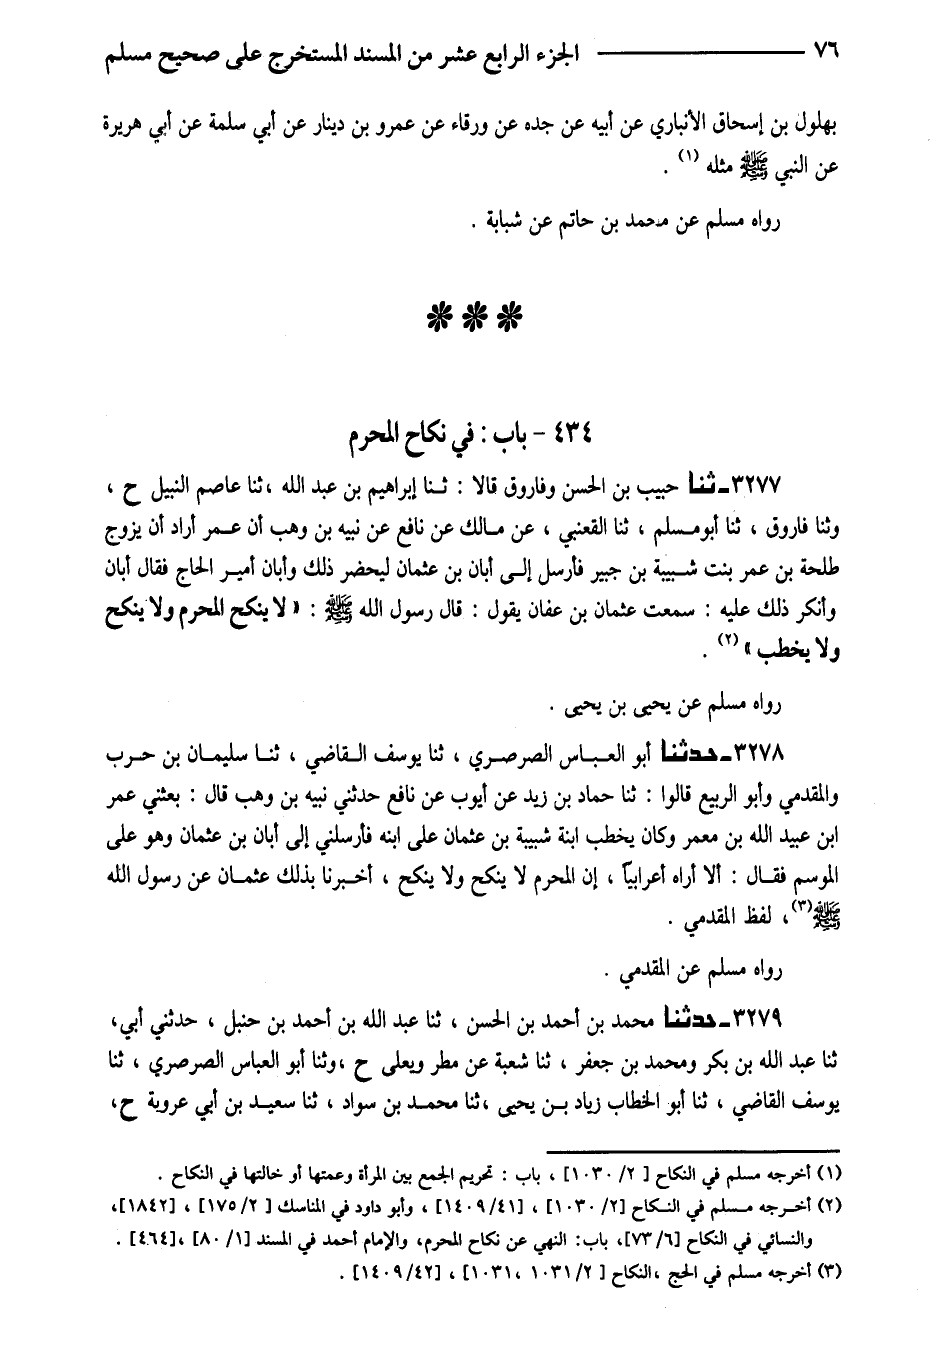 ٧٦ الجزء الرابع عشر من المسند المستخرج على صحيح مسلم
بهلول بن إسحاق الأنباري عن أبيه عن جده عن ورقاء عن عمرو بن دينار عن أبي سلمة عن أبي هريرة
عن النبي ﷺ مثله (١) .
رواه مسلم عن محمد بن حاتم عن شبابة .
٤٣٤ - باب : في نكاح المحرم
٣٢٧٧ـ ثنا حبيب بن الحسن وفاروق قالا : ثنا إبراهيم بن عبد الله ،ثنا عاصم النبيل ح ،
وثنا فاروق ، ثنا أبومسلم ، ثنا القعنبي ، عن مالك عن نافع عن نبيه بن وهب أن عمر أراد أن يزوج
طلحة بن عمر بنت شيبة بن جبير فأرسل إلى أبان بن عثمان ليحضر ذلك وأبان أمير الحاج فقال أبان
وأنكر ذلك عليه : سمعت عثمان بن عفان يقول : قال رسول الله ﷺ : « لا ينكح المحرم ولا ينكح
ولا يخطب » (٢) .
رواه مسلم عن يحيى بن يحيى .
٣٢٧٨ـ حدثنا أبو العباس الصرصري ، ثنا يوسف القاضي ، ثنا سليمان بن حرب
والمقدمي وأبو الربيع قالوا : ثنا حماد بن زيد عن أيوب عن نافع حدثني نبيه بن وهب قال : بعثني عمر
ابن عبيد الله بن معمر وكان يخطب ابنة شيبة بن عثمان على ابنه فأرسلني إلى أبان بن عثمان وهو على
الموسم فقال : ألا أراه أعرابياً ، إن المحرم لا ينكح ولا ينكح ، أخبرنا بذلك عثمان عن رسول الله
ﷺ(٣)، لفظ المقدمي .
رواه مسلم عن المقدمي .
٣٢٧٩ـ حدثنا محمد بن أحمد بن الحسن ، ثنا عبد الله بن أحمد بن حنبل ، حدثني أبي،
ثنا عبد الله بن بكر ومحمد بن جعفر ، ثنا شعبة عن مطر ويعلى ح ،وثنا أبو العباس الصرصري ، ثنا
يوسف القاضي ، ثنا أبو الخطاب زياد بن يحيى ،ثنا محمد بن سواد ، ثنا سعيد بن أبي عروبة ح،
(١) أخرجه مسلم في النكاح [ ٢/ ١٠٣٠] ، باب : تحريم الجمع بين المرأة وعمتها أو خالتها في النكاح .
(٢) أخرجه مسلم في النكاح [٢/ ١٠٣٠] ، [١٤٠٩/٤١] ، وأبو داود في المناسك [ ٢/ ١٧٥] ، [١٨٤٢]،
والنسائي في النكاح [٦/ ٧٣]، باب: النهي عن نكاح المحرم، والإمام أحمد في المسند [١/ ٨٠] ،[٤٦٤] .
(٣) أخرجه مسلم في الحج ،النكاح [ ٢/ ١٠٣١ ،١٠٣١] ، [١٤٠٩/٤٢] .